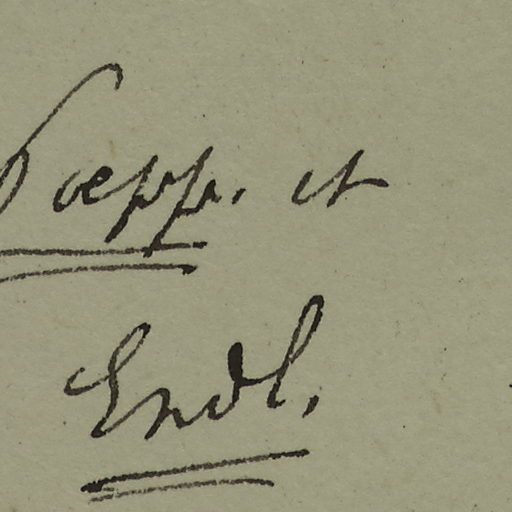 Poepp. et
Endl.